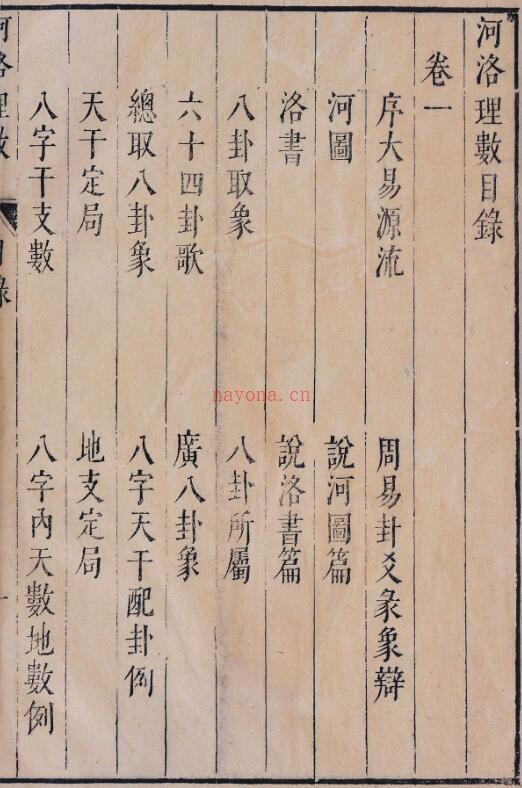 河洛理數目錄
卷一
序大易源流
周易卦爻彖象辯
河圖
說河圖篇
洛書
說洛書篇
八卦取象
八卦所屬
六十四卦歌
廣八卦象
總取八卦象
八字天干配卦例
天干定局
地支定局
八字干支數
八字內天數地數例
河洛理數
目錄
一
nayona.cn